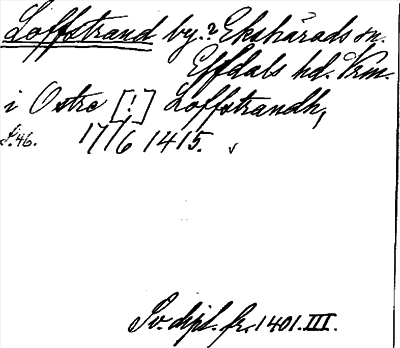 Loffstrand by.? Ekshärads sn.
Elfdals hd. Vrm.
i Ostre [!] Loffstrandh,
S. 46. 17/6 1415.
Sv. dipl. fr. 1401. III.